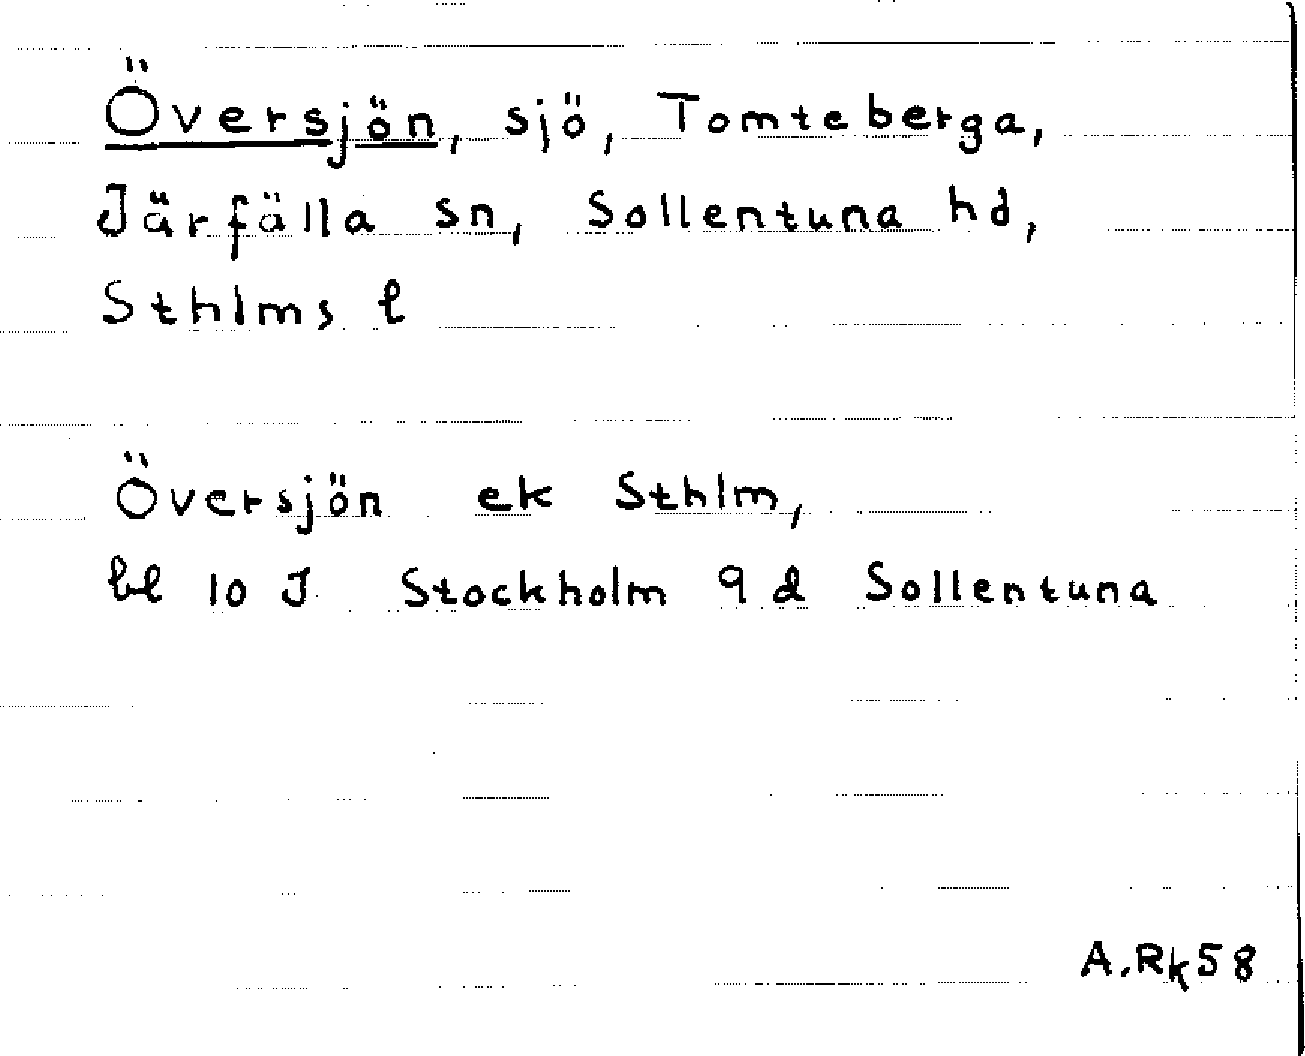 Översjön, sjö, Tomteberga,
Järfälla sn, Sollentuna hd,
Sthlms l
Översjön ek Sthlm,
bl 10 J Stockholm 9 d Sollentuna
A.Rk58